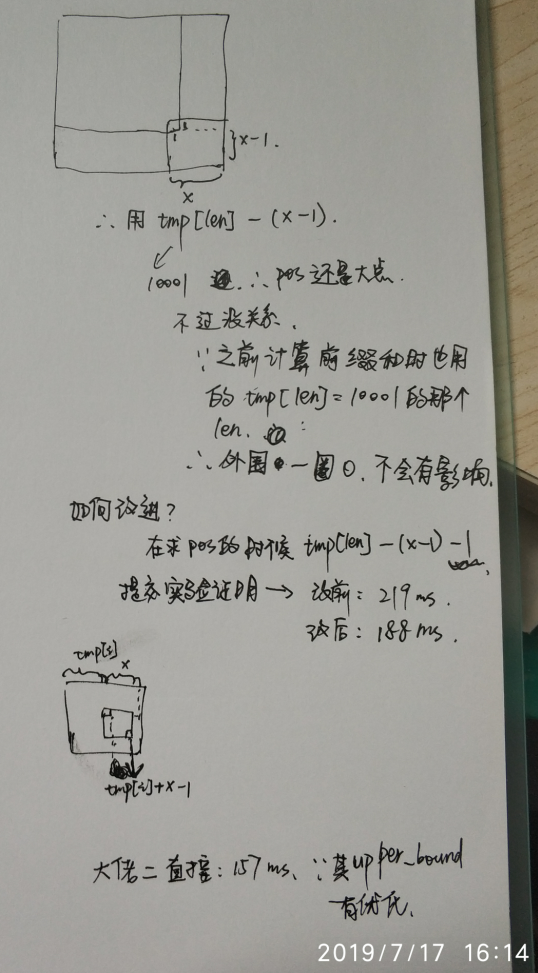 x-1.
x
∴ 用 tmp[len] - (x-1).
10001 ∴ pos 还是大点.
不过没关系.
∵ 之前计算前缀和时也用
的 tmp[len] = 10001 的那个
len.
∴ 外围一圈 0, 不会有影响.
如何改进?
在求 pos 的时候 tmp[len] - (x-1) - 1
提交实验证明 → 改前: 219 ms.
改后: 188 ms.
tmp[i] x
tmp[i]+x-1
大佬二直接: 157 ms, ∵ 其 upper_bound
有优化.
2019/7/17 16:14